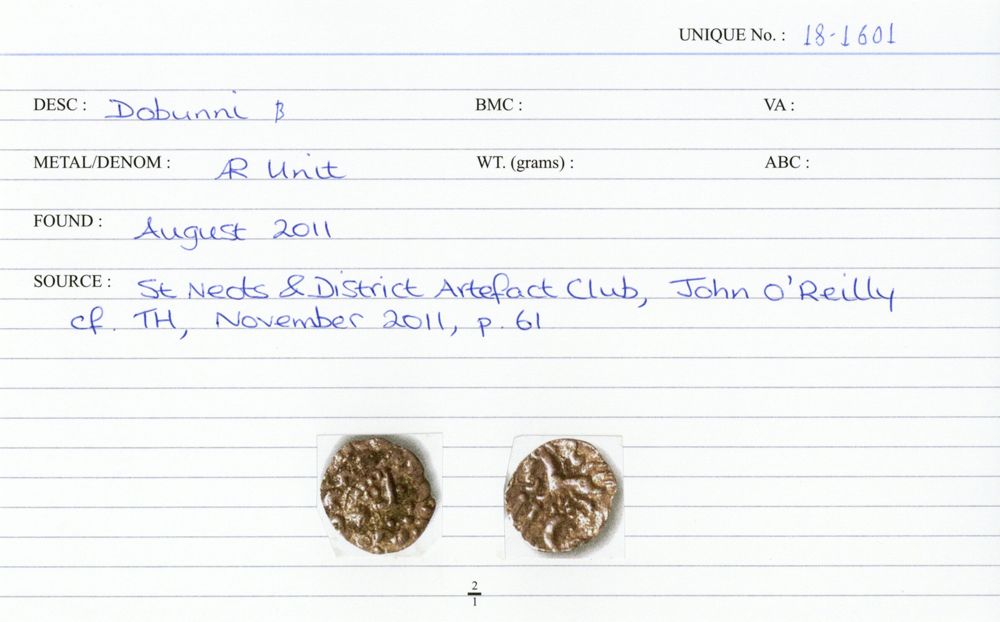 UNIQUE No. : 18-1601
DESC : Dobunni B BMC : VA :
METAL/DENOM : AR Unit WT. (grams) : ABC :
FOUND : August 2011
SOURCE : St Neots & District Artefact Club, John O'Reilly
cf. TH, November 2011, p. 61
2
1